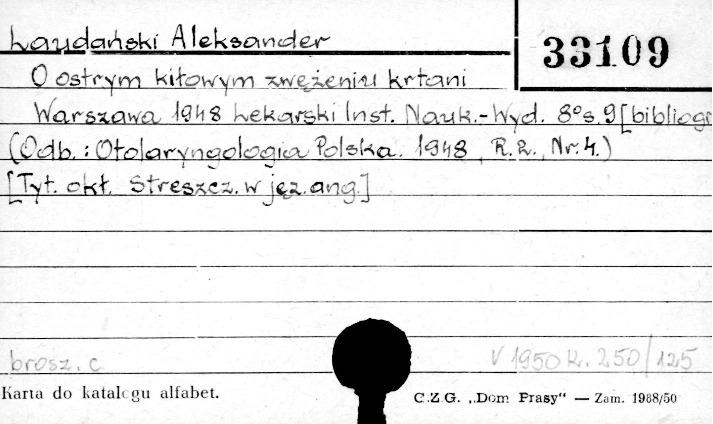 Laudański Aleksander
33109
O ostrym kiłowym zwężeniu krtani
Warszawa 1948 Lekarski Inst. Nauk.-Wyd. 8° s. 9 [bibliogr
(Odb.: Otolaryngologia Polska. 1948, R. 2., Nr. 4.)
[Tyt. okł. Streszcz. w jęz. ang.]
brosz. c.
V 1950 K. 250/125
Karta do katalogu alfabet.
C.Z.G. „Dom Prasy" — Zam. 1988/50